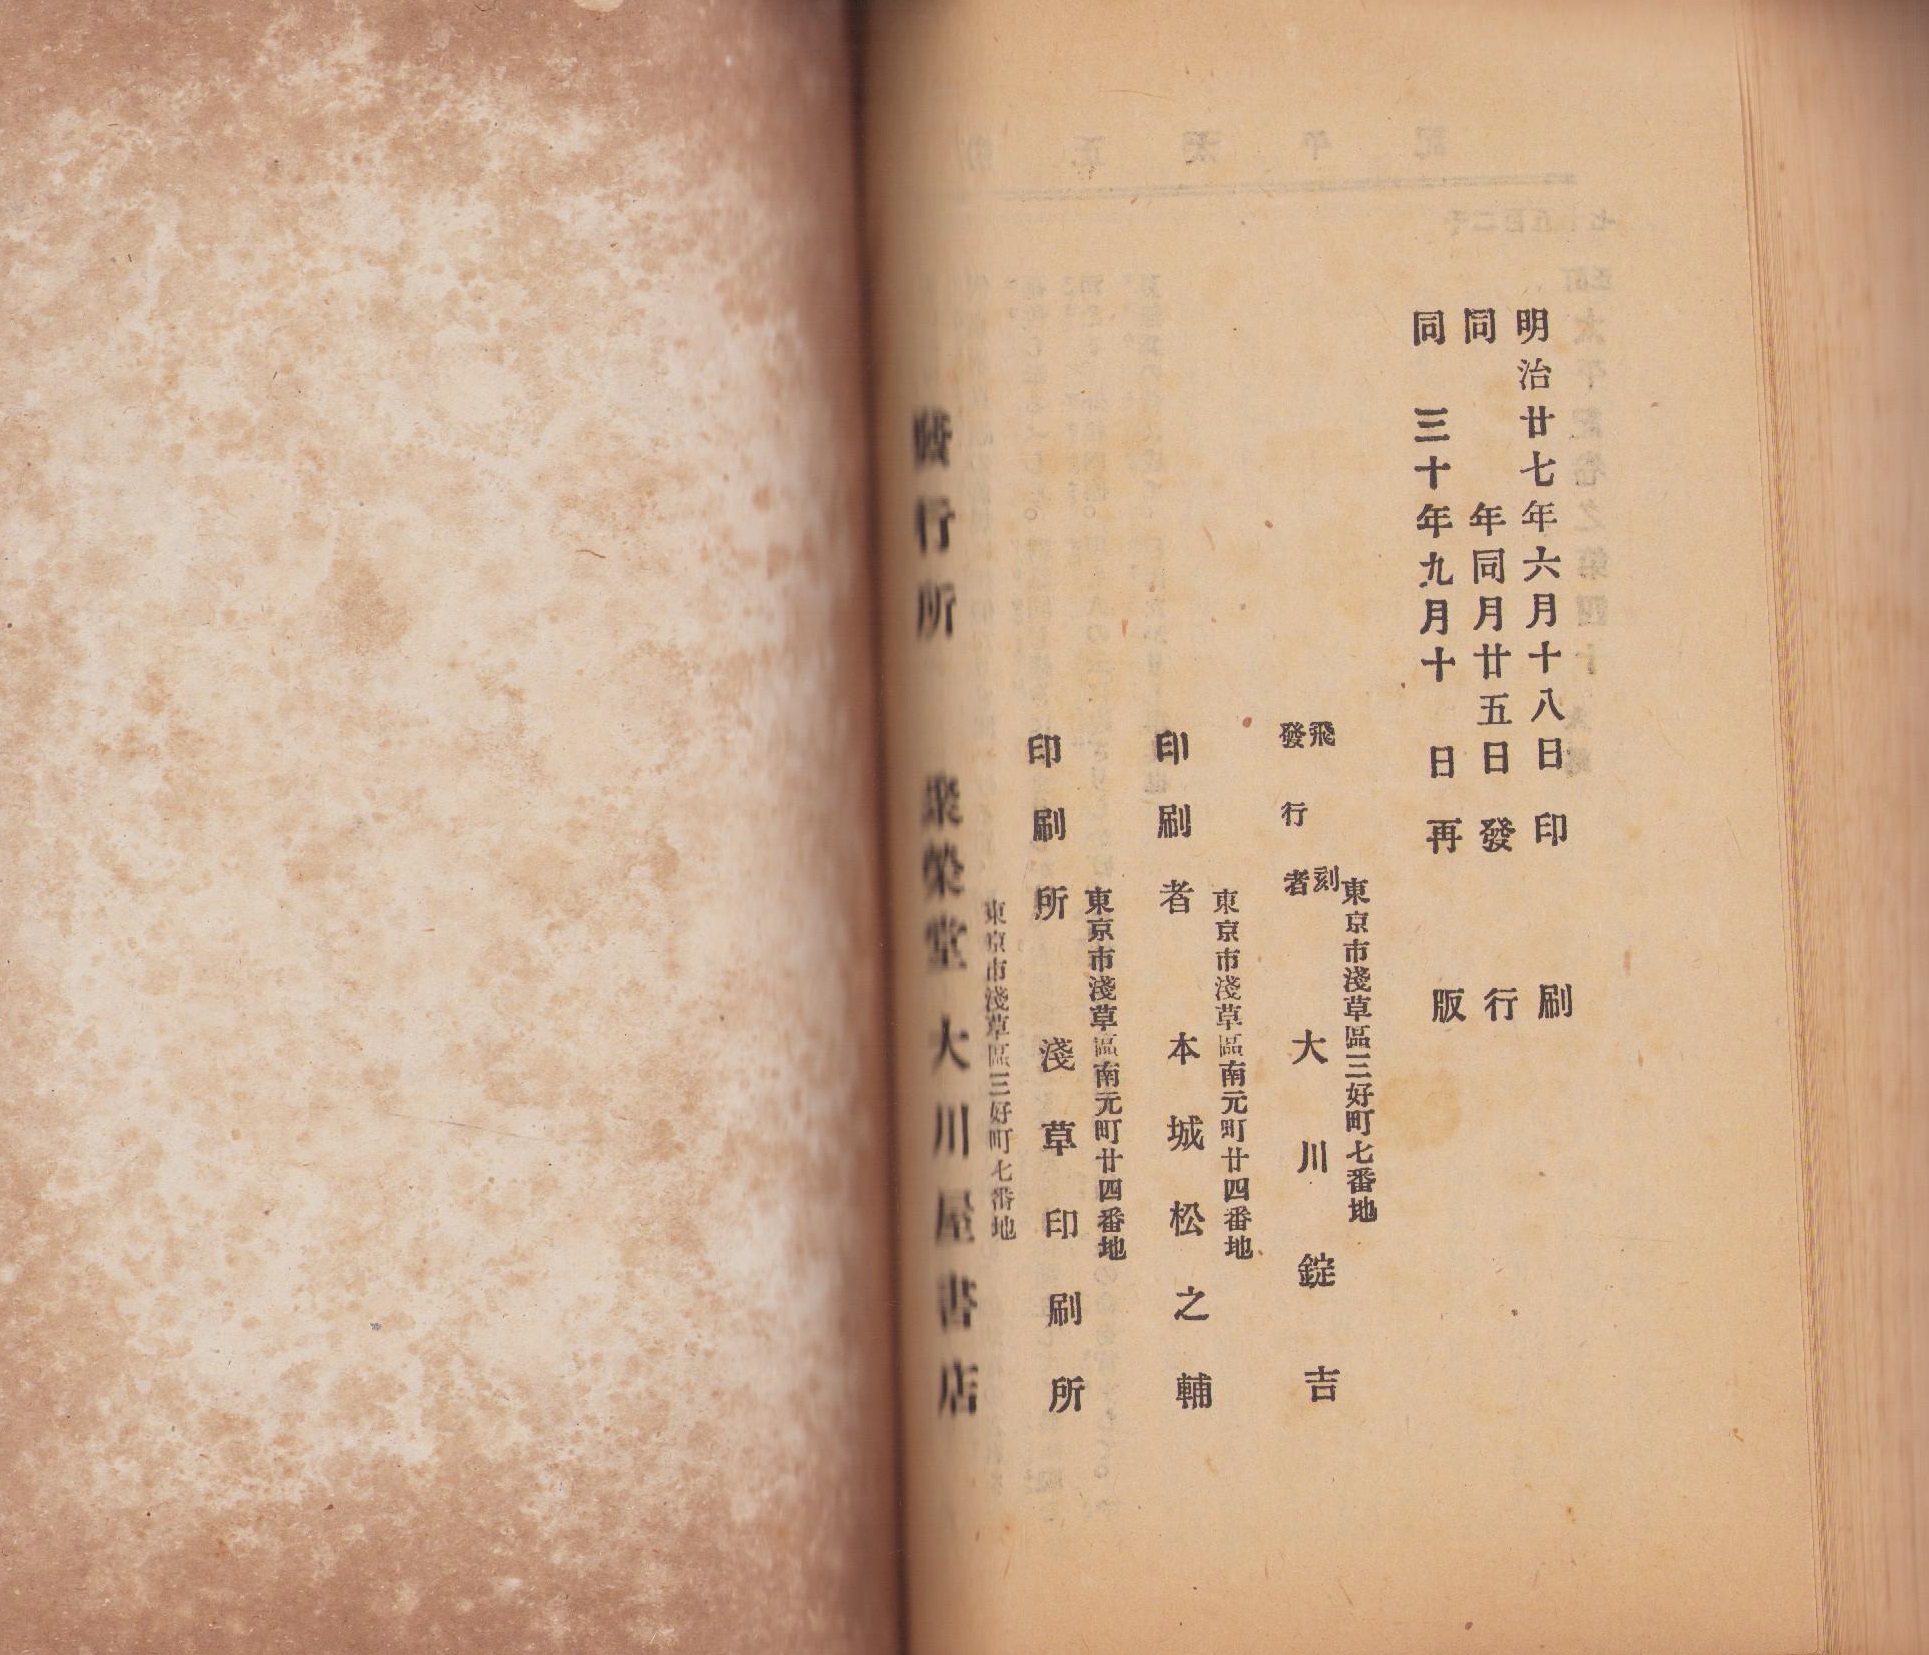 明治廿七年六月十八日印刷
同年同月廿五日發行
同三十年九月十日再版
東京市淺草區三好町七番地
飜刻
發行者 大川錠吉
東京市淺草區南元町廿四番地
印刷者 本城松之輔
東京市淺草區南元町廿四番地
印刷所 淺草印刷所
東京市淺草區三好町七番地
發行所 聚榮堂大川屋書店